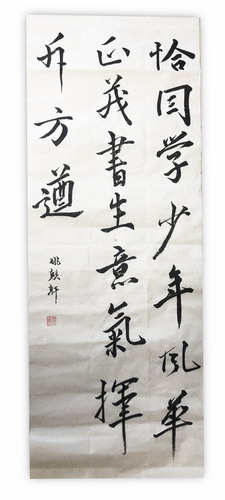 恰同学少年风華
正茂書生意氣揮
斥方遒
姚軒